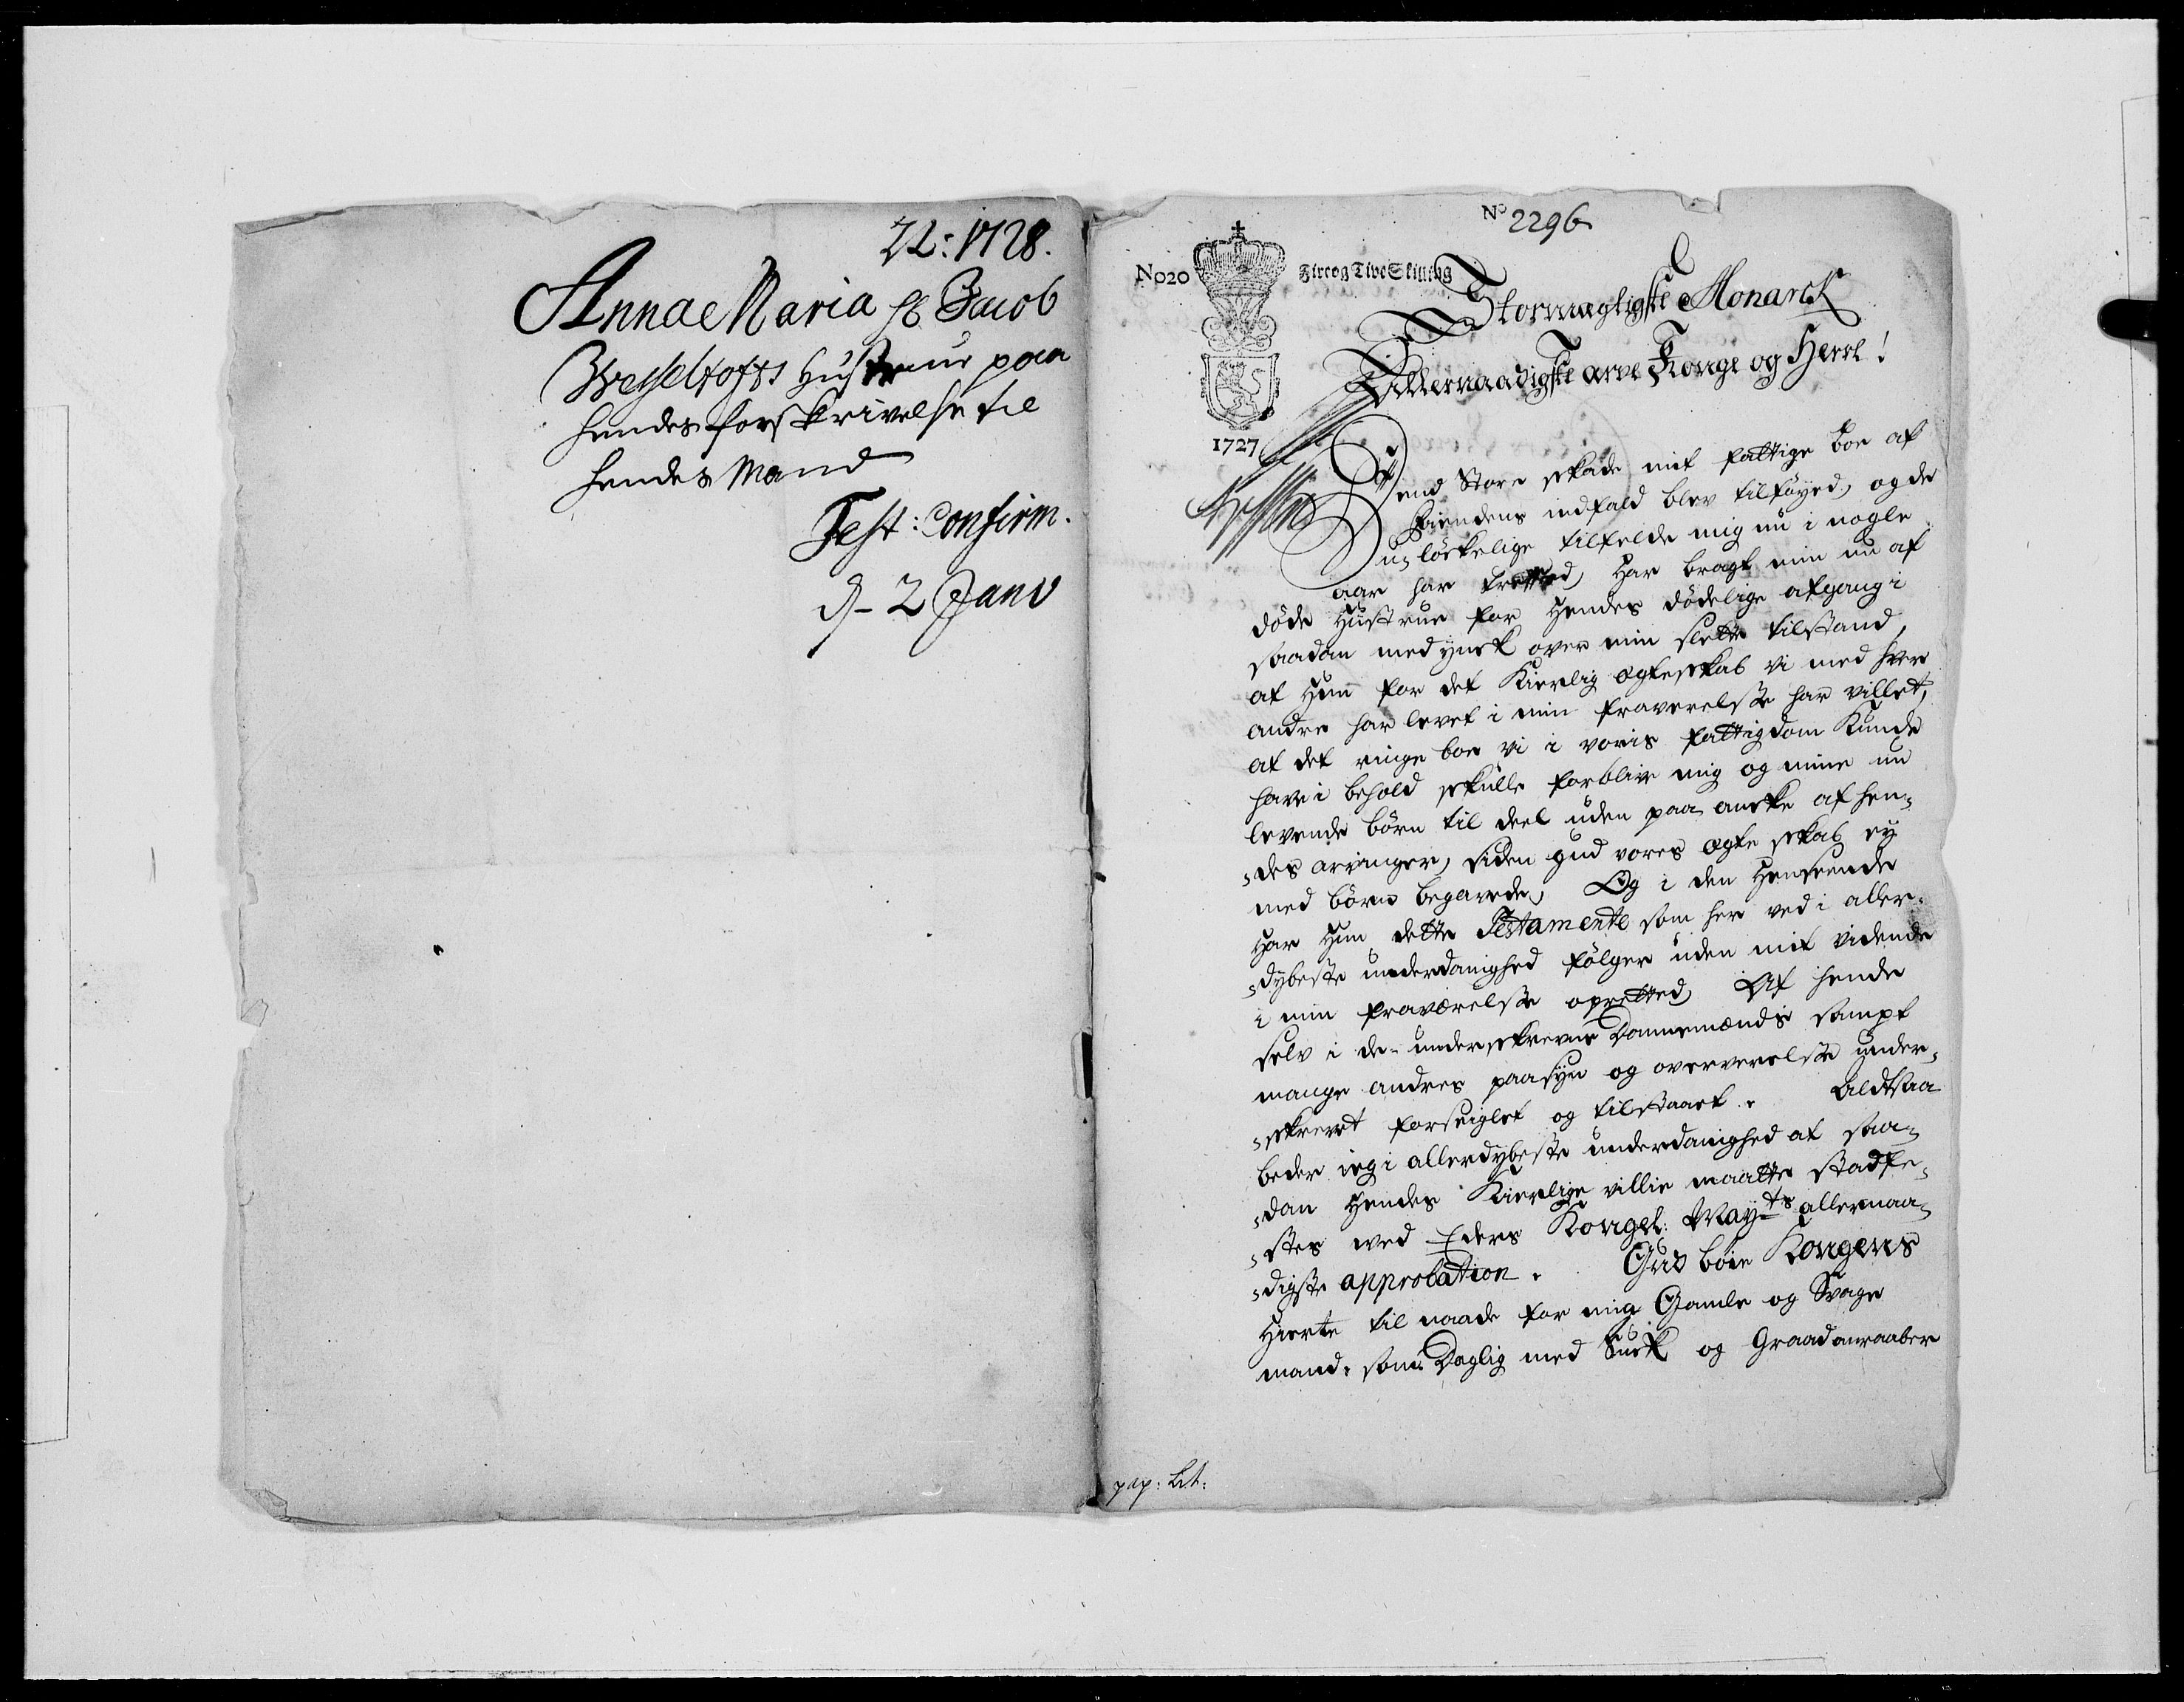 72: 1728.
Anna Maria Sl Jacob
Wesseltofts Hustrue paa
hendes forskrivelse til
hendes Mand
Test: Confirm.
d- 2 Janv
No 2296
No20
Fire og Tive Skilling
1727
Stormægtigste Monarck
Allernaadigste arve Konge og Herre!
Dend Store skade mit fattige boe af
fiendens indfald blev tilføyed, og de
u-løckelige tilfelde mig nu i nogle
aar har treffed, har bragt min nu af
døde Hustrue for hendes dødelige afgang i
saadan medynck over min slette tilstand,
at hun for det Kierlig ægteskab vi med hver
andre har levet i min fraverelse har villet,
at det ringe boe vi i voris fattigdom Kunde
have i behold skulle forblive mig og mine nu
levende børn til deel uden paa ancke af hen-
-des arvinger, siden gud vores ægte skab ey
med børn begavede, Og i den Henseende
har hun dette Testamente som her ved i aller-
-dybeste underdanighed følger uden mit vidende
i min fraværelse opretted, Af hende
selv i de underskrevne Dannemænds sampt
mange andres paasyn og oververelse under-
-skrevet forseiglet og tilstaaet. Altsaa
beder ieg i allerdybeste underdanighed at saa-
-dan hendes Kierlige villie maatte stadfe-
-stes ved Eders Kongel: Mayts allernaa-
-digste approbation. Gud bøie Kongens
Hierte til naade for mig Gamle og Svage
mand, som Daglig med Suck og Graad anraaber
pap: Lit: